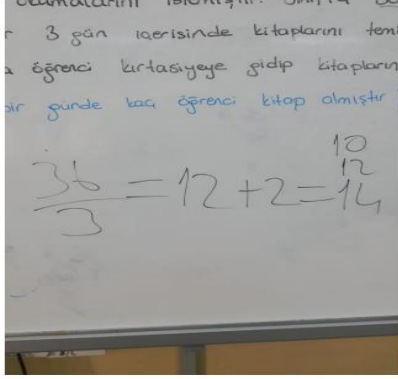 3 gün içerisinde kitaplarını
öğrenci kırtasiyeye gidip
bir günde kaç öğrenci kitap almıştır
10
12
36/3 = 12 + 2 = 14